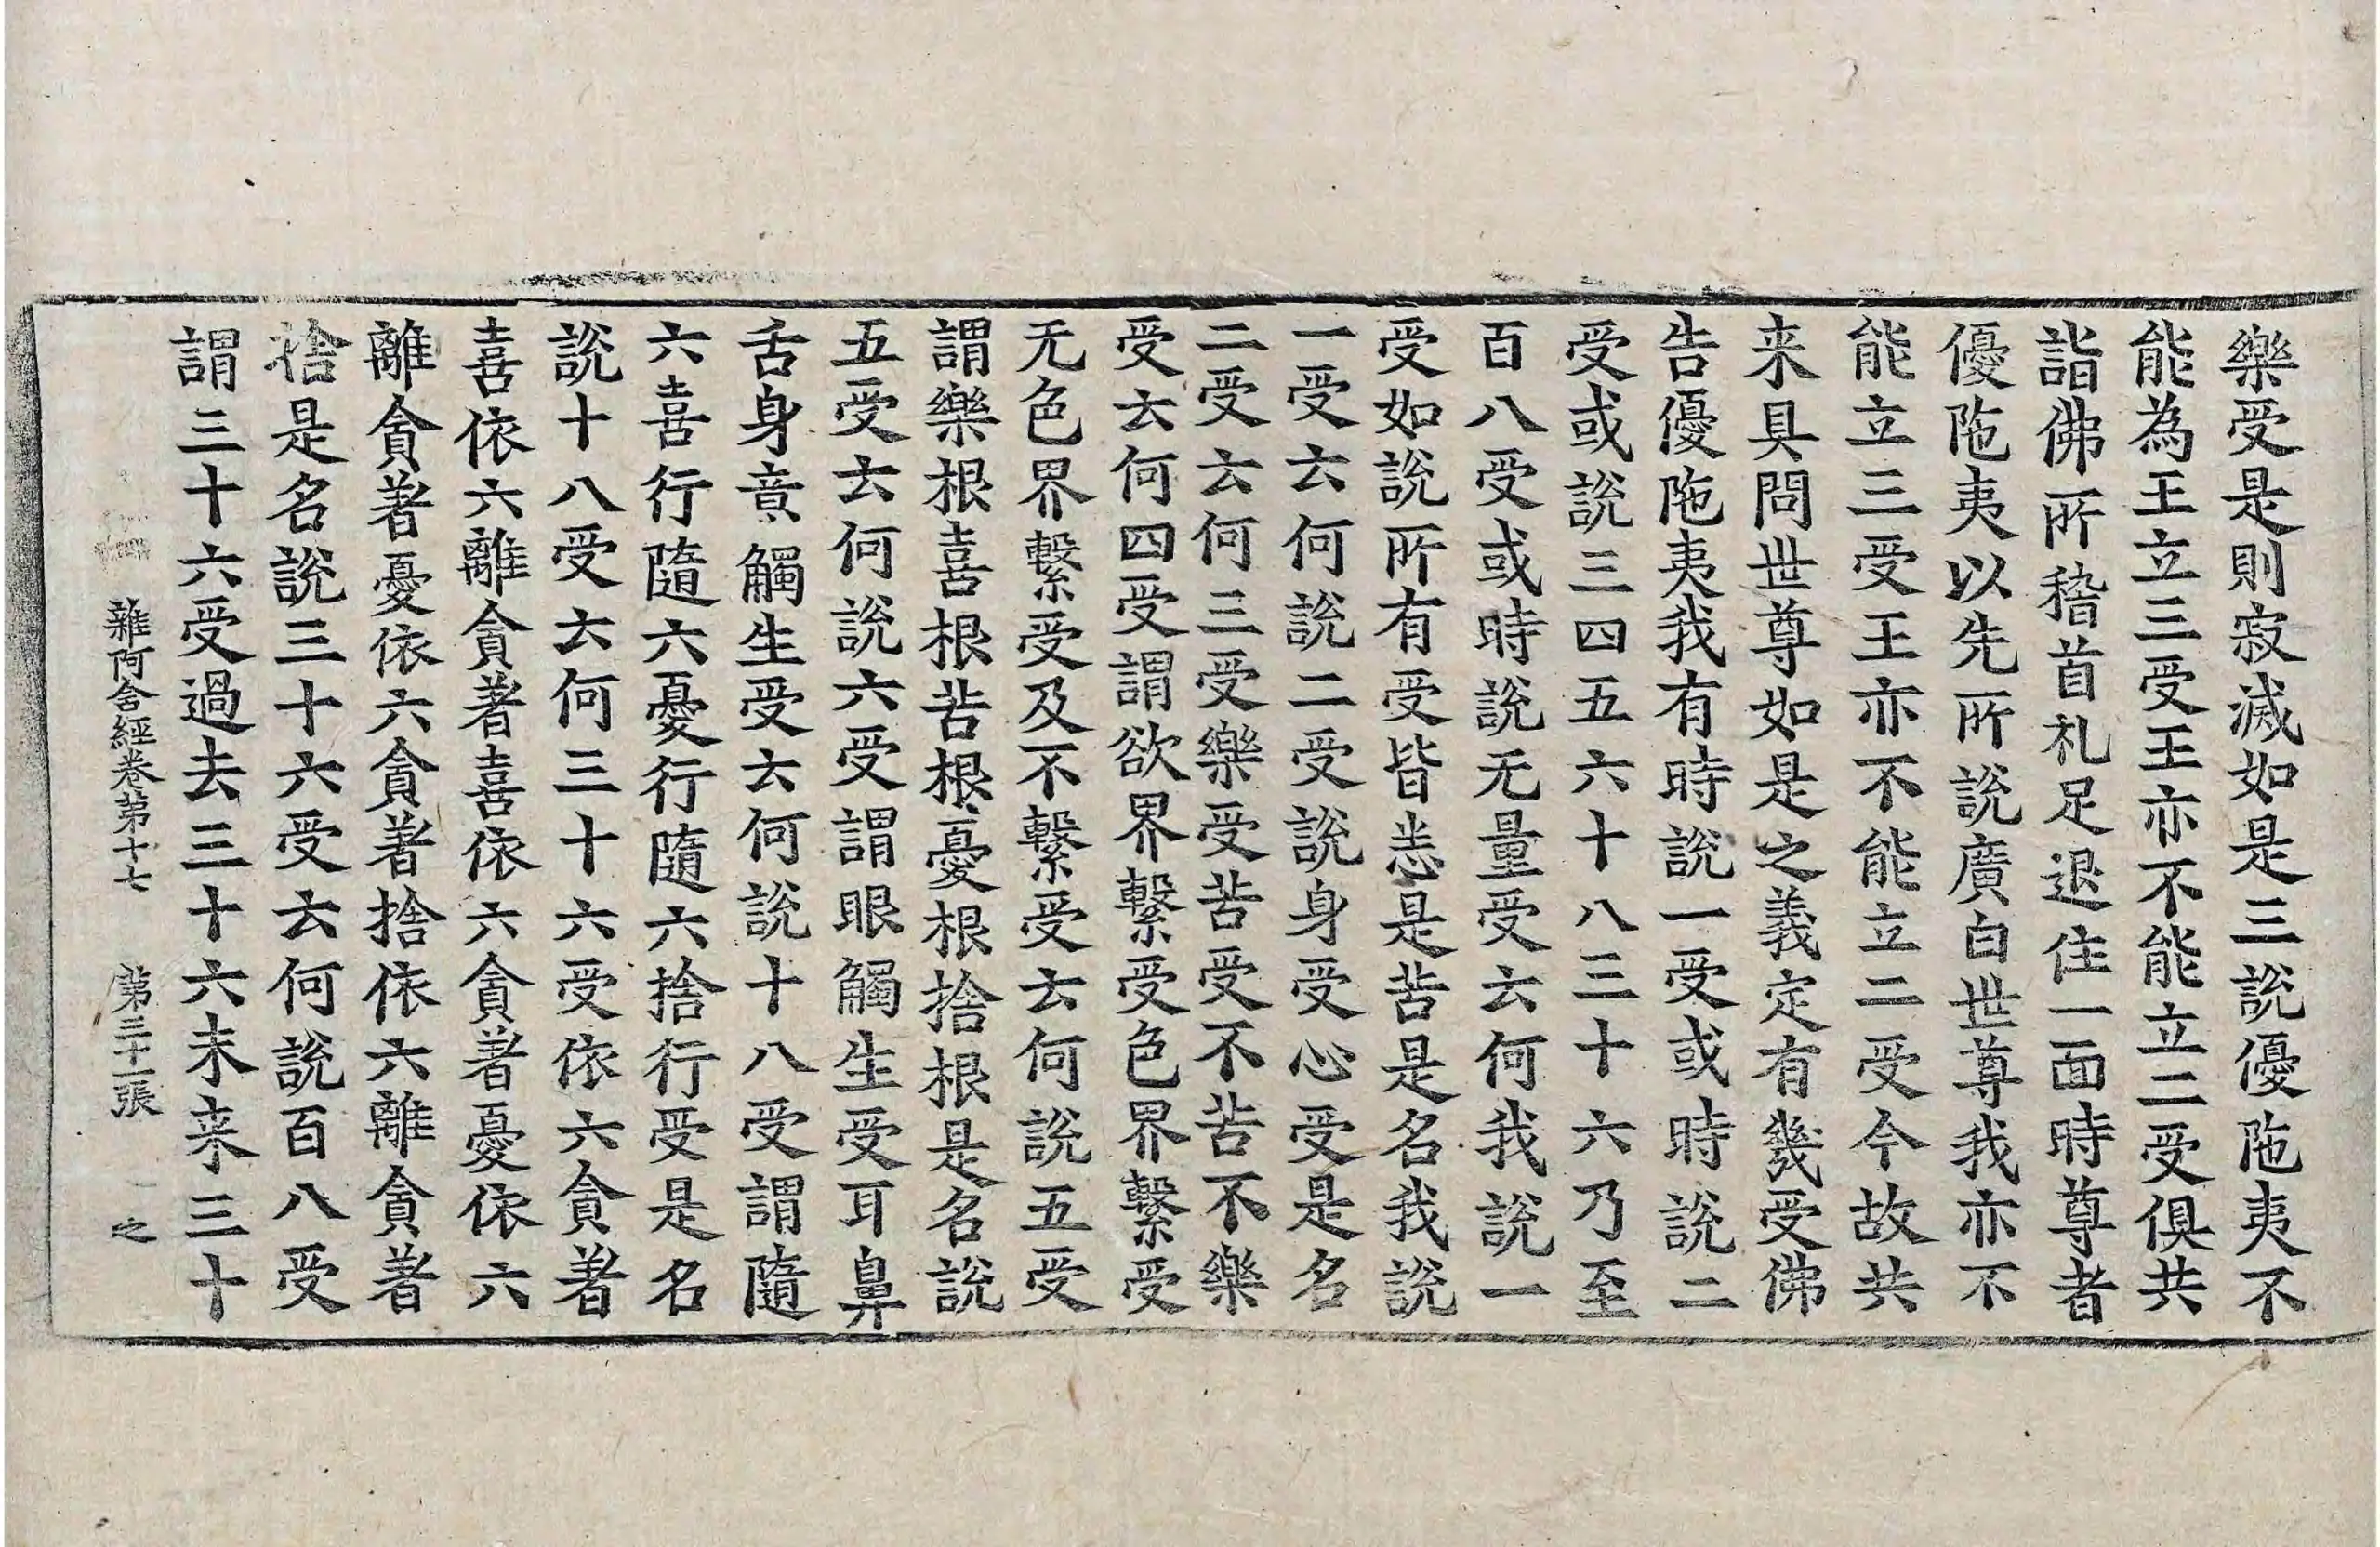 樂受是則寂滅如是三說優陁夷不
能為王立三受王亦不能立二受俱共
詣佛所稽首礼足退住一面時尊者
優陁夷以先所說廣白世尊我亦不
能立三受王亦不能立二受今故共
来具問世尊如是之義定有幾受佛
告優陁夷我有時說一受或時說二
受或說三四五六十八三十六乃至
百八受或時說无量受云何我說一
受如說所有受皆悉是苦是名我說
一受云何說二受說身受心受是名
二受云何三受樂受苦受不苦不樂
受云何四受謂欲界繫受色界繫受
无色界繫受及不繫受云何說五受
謂樂根喜根苦根憂根捨根是名說
五受云何說六受謂眼觸生受耳鼻
舌身意觸生受云何說十八受謂隨
六喜行隨六憂行隨六捨行受是名
說十八受云何三十六受依六貪著
喜依六離貪著喜依六貪著憂依六
離貪著憂依六貪著捨依六離貪著
捨是名說三十六受云何說百八受
謂三十六受過去三十六未来三十
雜阿含經卷第十七 第三十一張 之